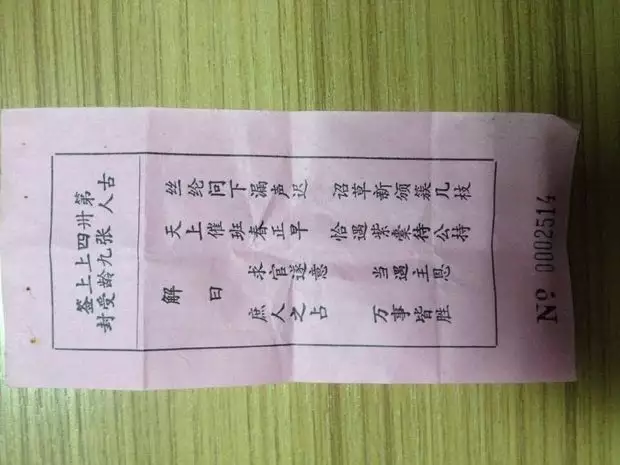 第卅四上上签
古人张九龄受封
丝纶问下漏声迟 诏草新颁簇几枝
天上催班春正早 恰遇紫豪待公持
解曰
求官遂意 当遇主恩
庶人之占 万事皆胜
№ 0002514